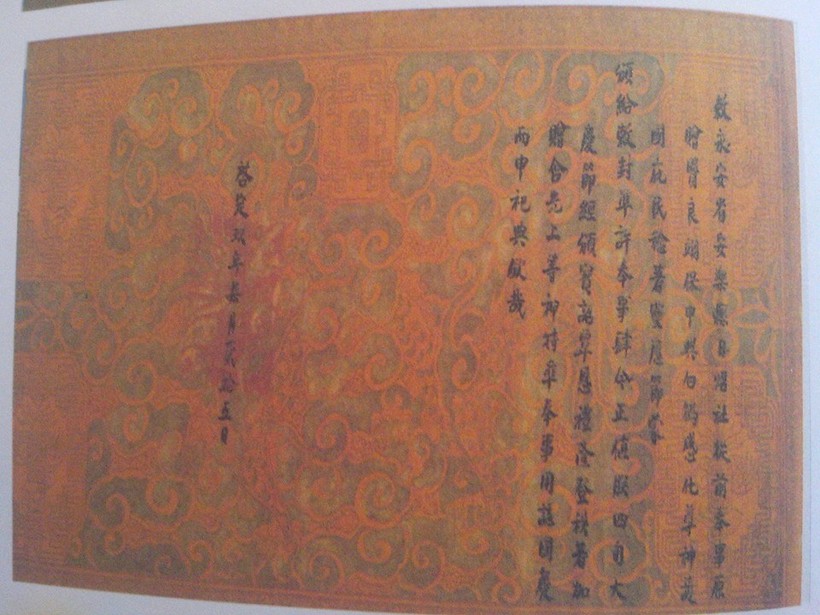 敕永安省安樂縣社從前奉事原
贈良翊保中興白鶴感化尊神護
國庇民稔著靈應節蒙
頒給敕封準許奉事肆今正值朕四旬大
慶節經頒寶詔覃恩禮隆登秩著加
贈含光上等神特準奉事用誌國慶
而申祀典欽哉
啓定玖年柒月貳拾五日